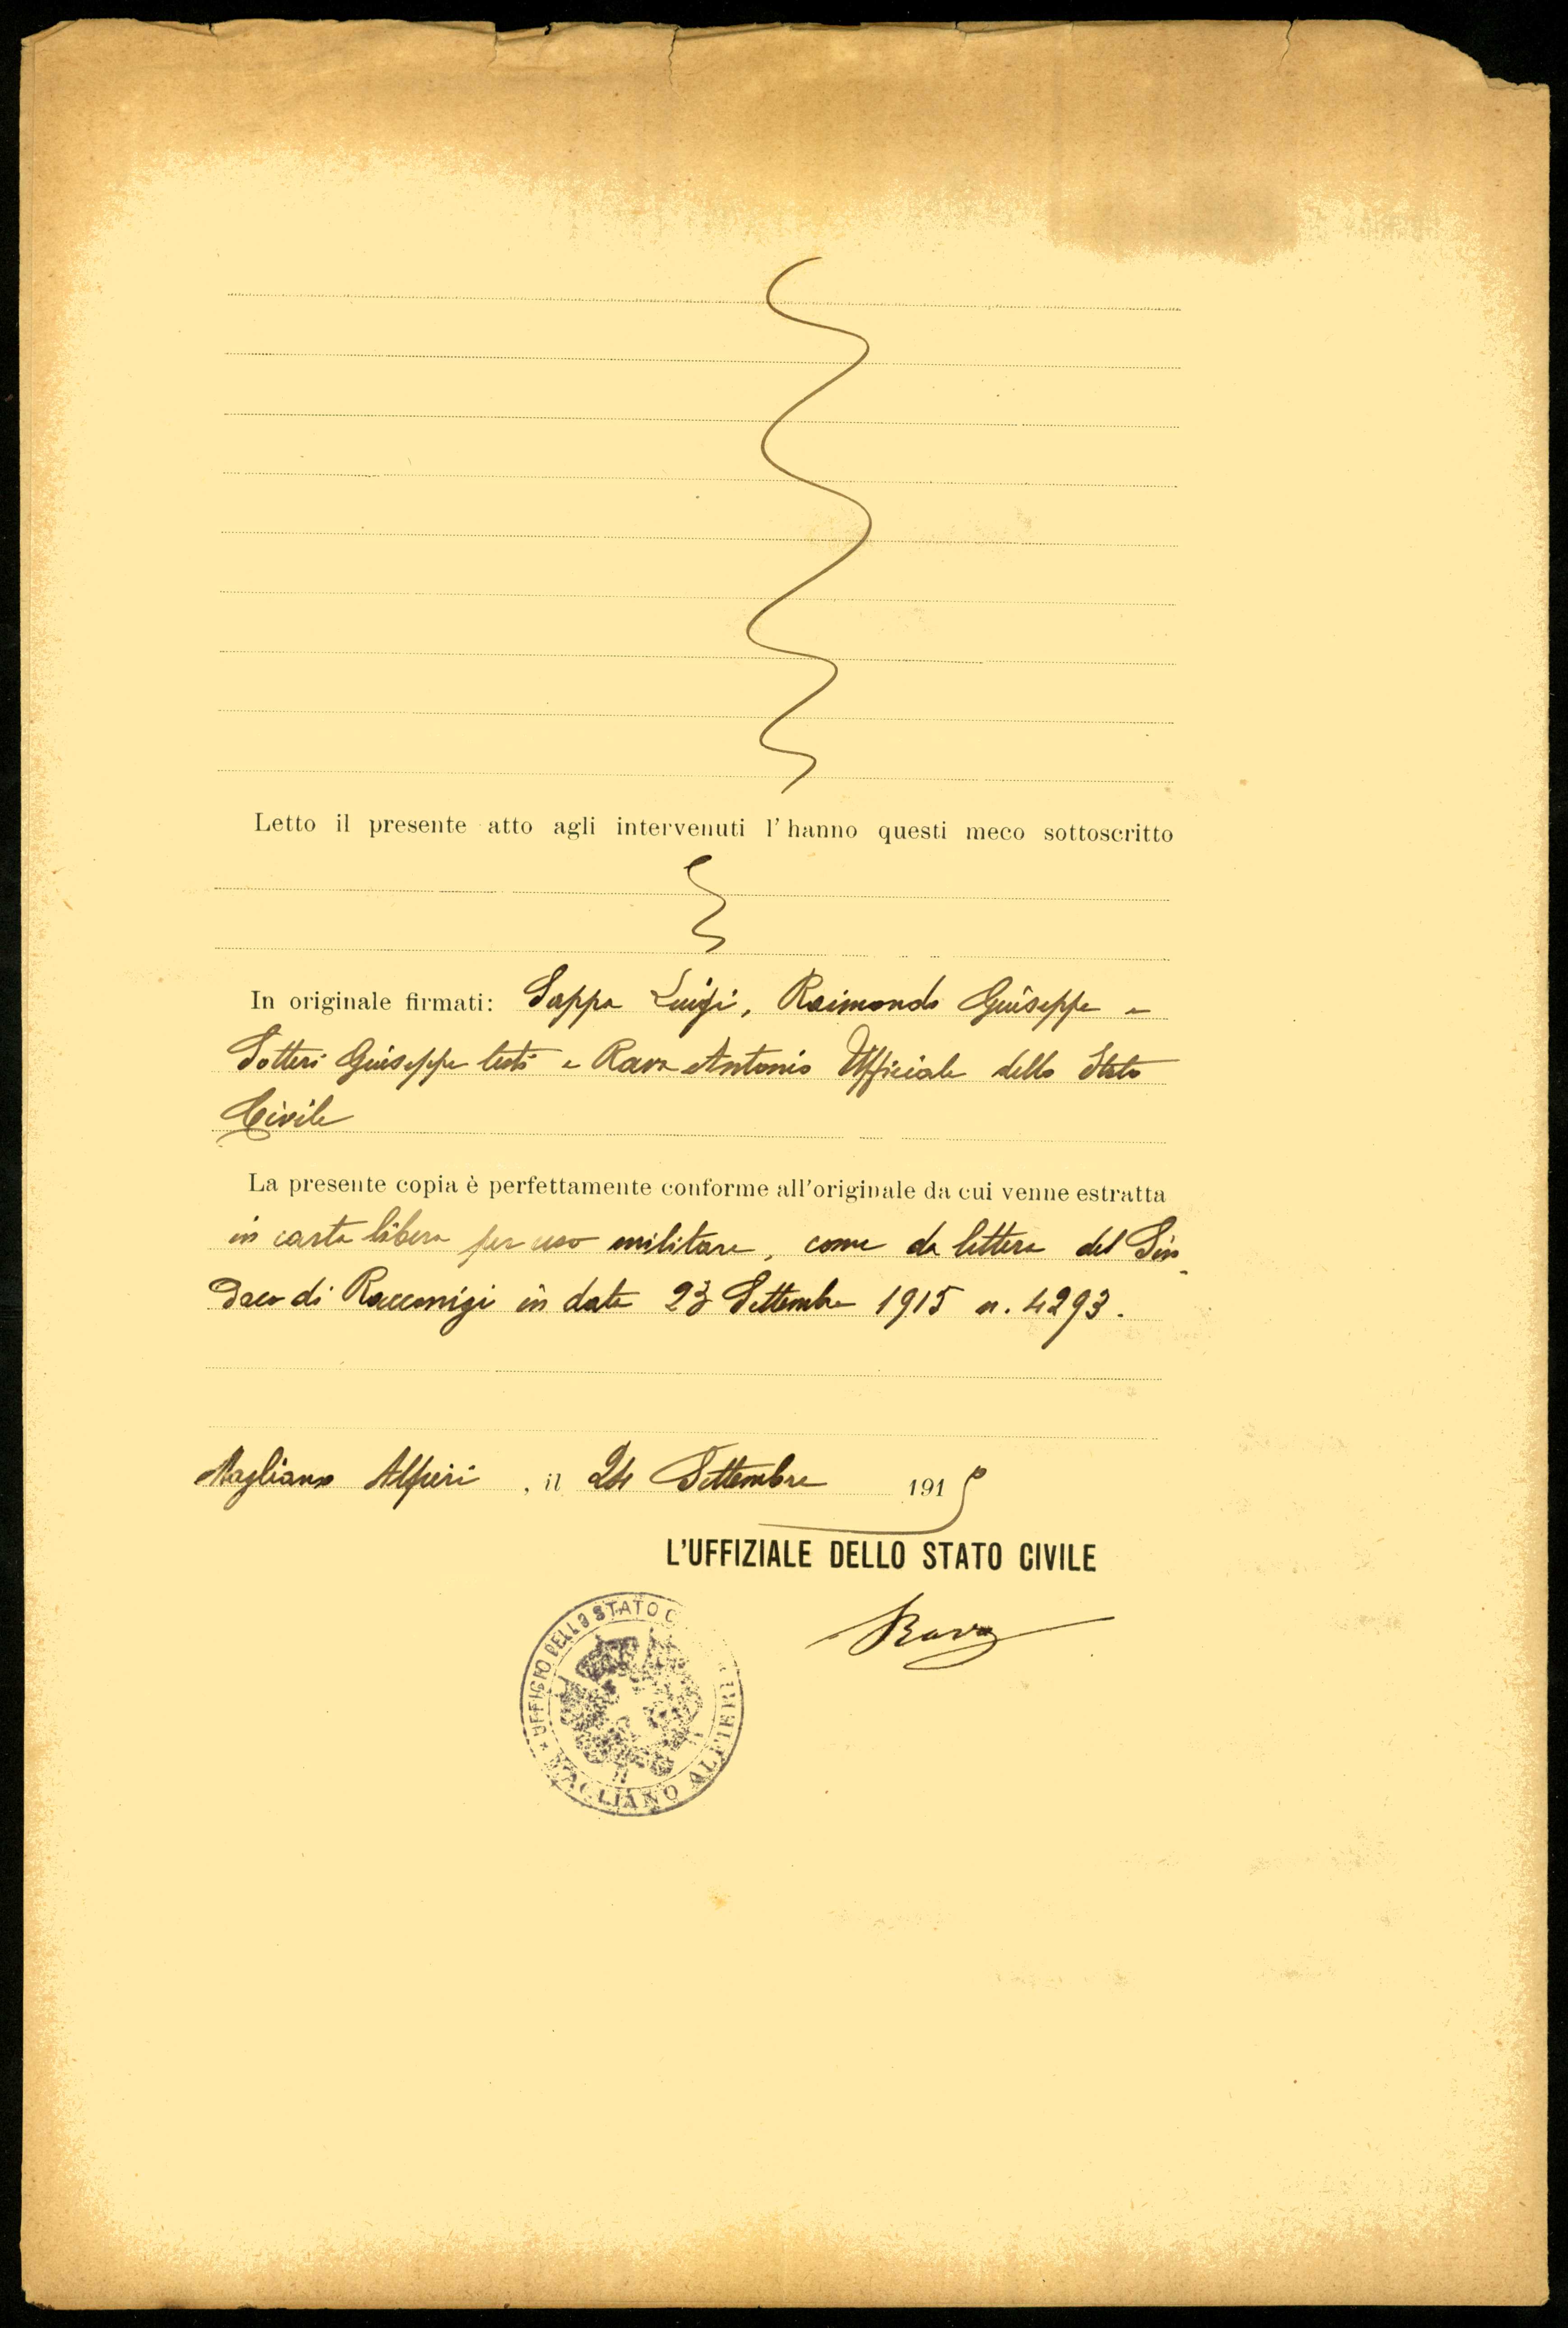 Letto il presente atto agli intervenuti l'hanno questi meco sottoscritto
In originale firmati: Sappa Luigi, Raimondo Giuseppe e
Sotteri Giuseppe testi e Rava Antonio Ufficiale dello Stato
Civile
La presente copia è perfettamente conforme all'originale da cui venne estratta
in carta libera per uso militare, come da lettera del Sin
daco di Racconigi in data 23 Settembre 1915 n. 4293.
Magliano Alfieri, il 24 Settembre 1915
L'UFFIZIALE DELLO STATO CIVILE
Rava
UFFICIO DELLO STATO C
MAGLIANO ALFIERI